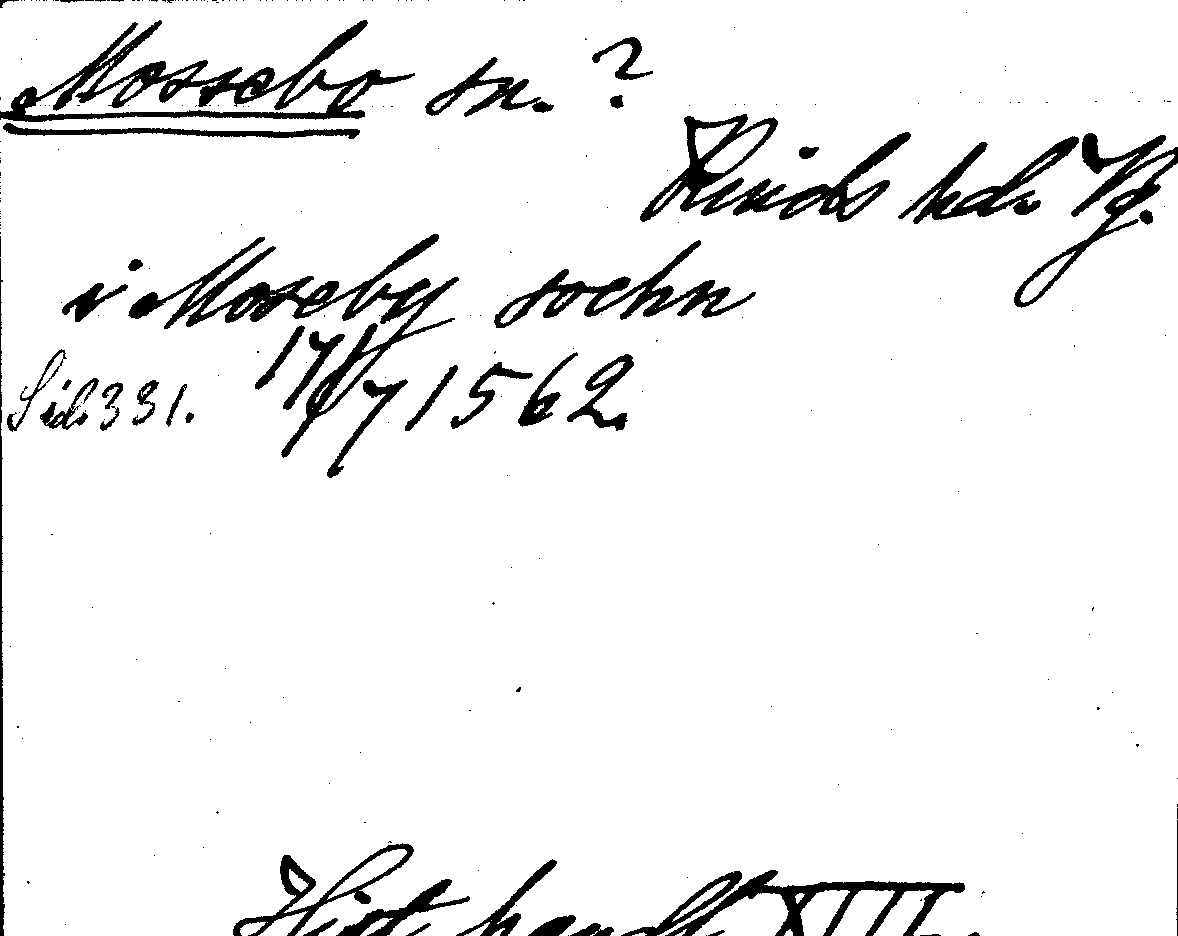 Mossebo sn. ?
Kinds hd. Vg.
i Moseby sochn
Sid. 331. 17/7 1562.
Hist. handl. XIII.